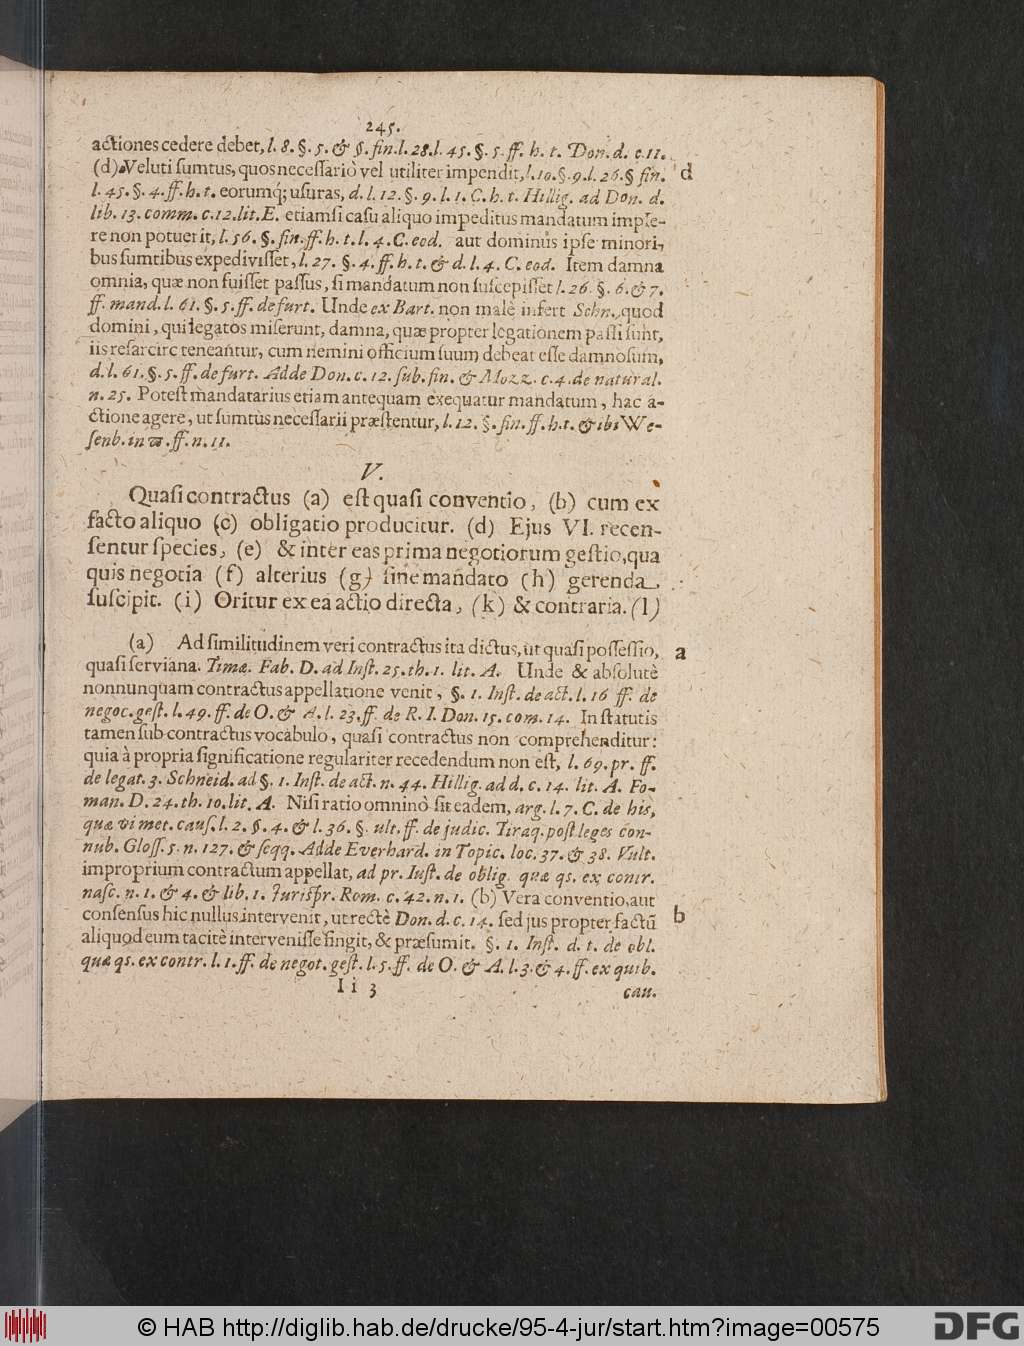 245.
actiones cedere debet, l. 8. §. 5. & §. fin. l. 28. l. 45. §. 5. ff. h. t. Don. d. c. 11.
(d) Veluti sumtus, quos necessariò vel utiliter impendit, l. 10. §. 9. l. 26. § fin. d
l. 45. §. 4. ff. h. t. eorumq; usuras, d. l. 12. §. 9. l. 1. C. h. t. Hillig. ad Don. d.
lib. 13. comm. c. 12. lit. E. etiamsi casu aliquo impeditus mandatum imple-
re non potuerit, l. 56. §. fin. ff. h. t. l. 4. C. eod. aut dominus ipse minori-
bus sumtibus expedivisset, l. 27. §. 4. ff. h. t. & d. l. 4. C. eod. Item damna
omnia, quæ non fuisset passus, si mandatum non suscepisset l. 26. §. 6. & 7.
ff. mand. l. 61. §. 5. ff. de furt. Unde ex Bart. non malè infert Schn. quod
domini, qui legatos miserunt, damna, quæ propter legationem passi sunt,
iis resarcire teneantur, cum nemini officium suum debeat esse damnosum,
d. l. 61. §. 5. ff. de furt. Adde Don. c. 12. sub. fin. & Mozz. c. 4. de natural.
n. 25. Potest mandatarius etiam antequam exequatur mandatum, hac a-
ctione agere, ut sumtus necessarii præstentur, l. 12. §. fin. ff. h. t. & ibi We-
senb. in ϖ. ff. n. 11.
V.
Quasi contractus (a) est quasi conventio, (b) cum ex
facto aliquo (c) obligatio producitur. (d) Ejus VI. recen-
sentur species, (e) & inter eas prima negotiorum gestio, qua
quis negotia (f) alterius (g) sine mandato (h) gerenda
suscipit. (i) Oritur ex ea actio directa, (k) & contraria. (l)
(a) Ad similitudinem veri contractus ita dictus, ut quasi possessio, a
quasi serviana. Timæ. Fab. D. ad Inst. 25. th. 1. lit. A. Unde & absolutè
nonnunquam contractus appellatione venit, §. 1. Inst. de act. l. 16 ff. de
negoc. gest. l. 49. ff. de O. & A. l. 23. ff. de R. I. Don. 15. com. 14. In statutis
tamen sub contractus vocabulo, quasi contractus non comprehenditur:
quia à propria significatione regulariter recedendum non est, l. 69. pr. ff.
de legat. 3. Schneid. ad §. 1. Inst. de act. n. 44. Hillig. ad d. c. 14. lit. A. Fo-
man. D. 24. th. 10. lit. A. Nisi ratio omninò sit eadem, arg. l. 7. C. de his,
quæ vi met. caus. l. 2. §. 4. & l. 36. §. ult. ff. de judic. Tiraq. post leges con-
nub. Gloss. 5. n. 127. & seqq. Adde Everhard. in Topic. loc. 37. & 38. Vult.
improprium contractum appellat, ad pr. Inst. de oblig. quæ qs. ex contr.
nasc. n. 1. & 4. & lib. 1. Jurispr. Rom. c. 42. n. 1. (b) Vera conventio, aut
consensus hic nullus intervenit, ut rectè Don. d. c. 14. sed jus propter factũ b
aliquod eum tacitè intervenisse fingit, & præsumit. §. 1. Inst. d. t. de obl.
quæ qs. ex contr. l. 1. ff. de negot. gest. l. 5. ff. de O. & A. l. 3. & 4. ff. ex quib.
Ii 3 cau.
© HAB http://diglib.hab.de/drucke/95-4-jur/start.htm?image=00575
DFG